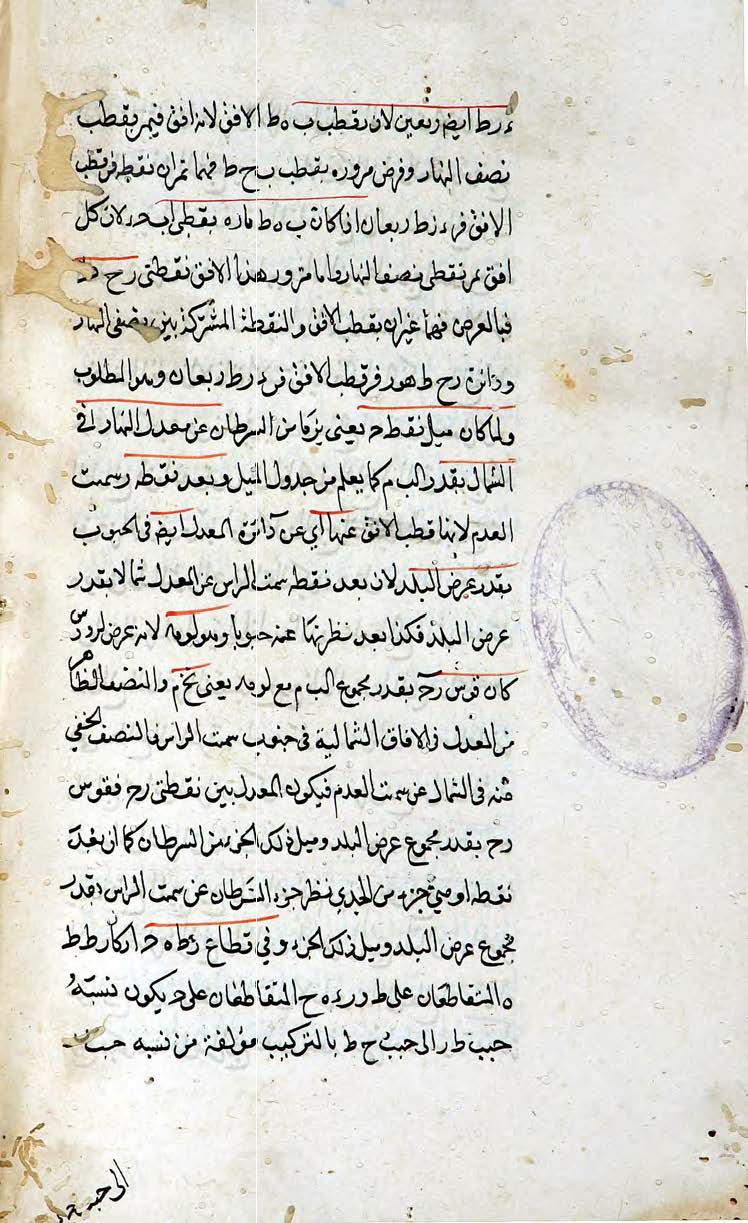 ء رط ايضا ربعين لان بقطب ب ه ط الافق لانه افق فيمر بقطب
نصف النهار وفرض مروره بقطب ب ح ط فهما تمران نقطه ر قطب
الافق فر ء زط ربعان اذا كان ب ه ط ماره بقطبى ا ب ح ء لان كل
افق يمر بقطبى نصف النهار واما مرور هذا الافق بنقطتى ر ح
فبالعرض فهما غيران بقطب الافق والنقطة المشتركة بين نصفى النهار
ودائرة رح ط هو ر قطب الافق فر ء رط ربعان وهو المطلوب
ولما كان ميل نقطه ح يعنى يز كا من السرطان عن معدل النهار فى
الشمال بقدر الب م كما يعلم من جدول الميل وبعد نقطه ر سمت
العدم لانها قطب الافق عنها اى عن دائرة المعدل ايضا فى الجنوب
بقدر عرض البلد لان بعد نقطه سمت الراس عن المعدل شمالا بقدر
عرض البلد فكذا بعد نظيرتها عنه جنوبا وهو لو مه لانه عرض لردوس
كان قوس رح بقدر مجموع الب م مع لو مه يعنى نح م والنصف الظاهر
من المعدل فى الافاق الشمالية فى جنوب سمت الراس فالنصف الخفي
منه فى الشمال عن سمت العدم فيكون المعدل بين نقطتى رح فقوس
رح بقدر مجموع عرض البلد وميل ذلك الجزء من السرطان كما ان بعد
نقطه او مى جزء من الجدي نظير جزء السرطان عن سمت الراس بقدر
مجموع عرض البلد وميل ذلك الجزء وفي قطاع ر ط ه ح ا ركار ط ط
ه المتقاطعان على ط و ر ء ه ح المتقاطعان على ح يكون نسبة
جيب ط ر الى جيب ح ط بالتركيب مؤلفة من نسبه جيب
الى جيب